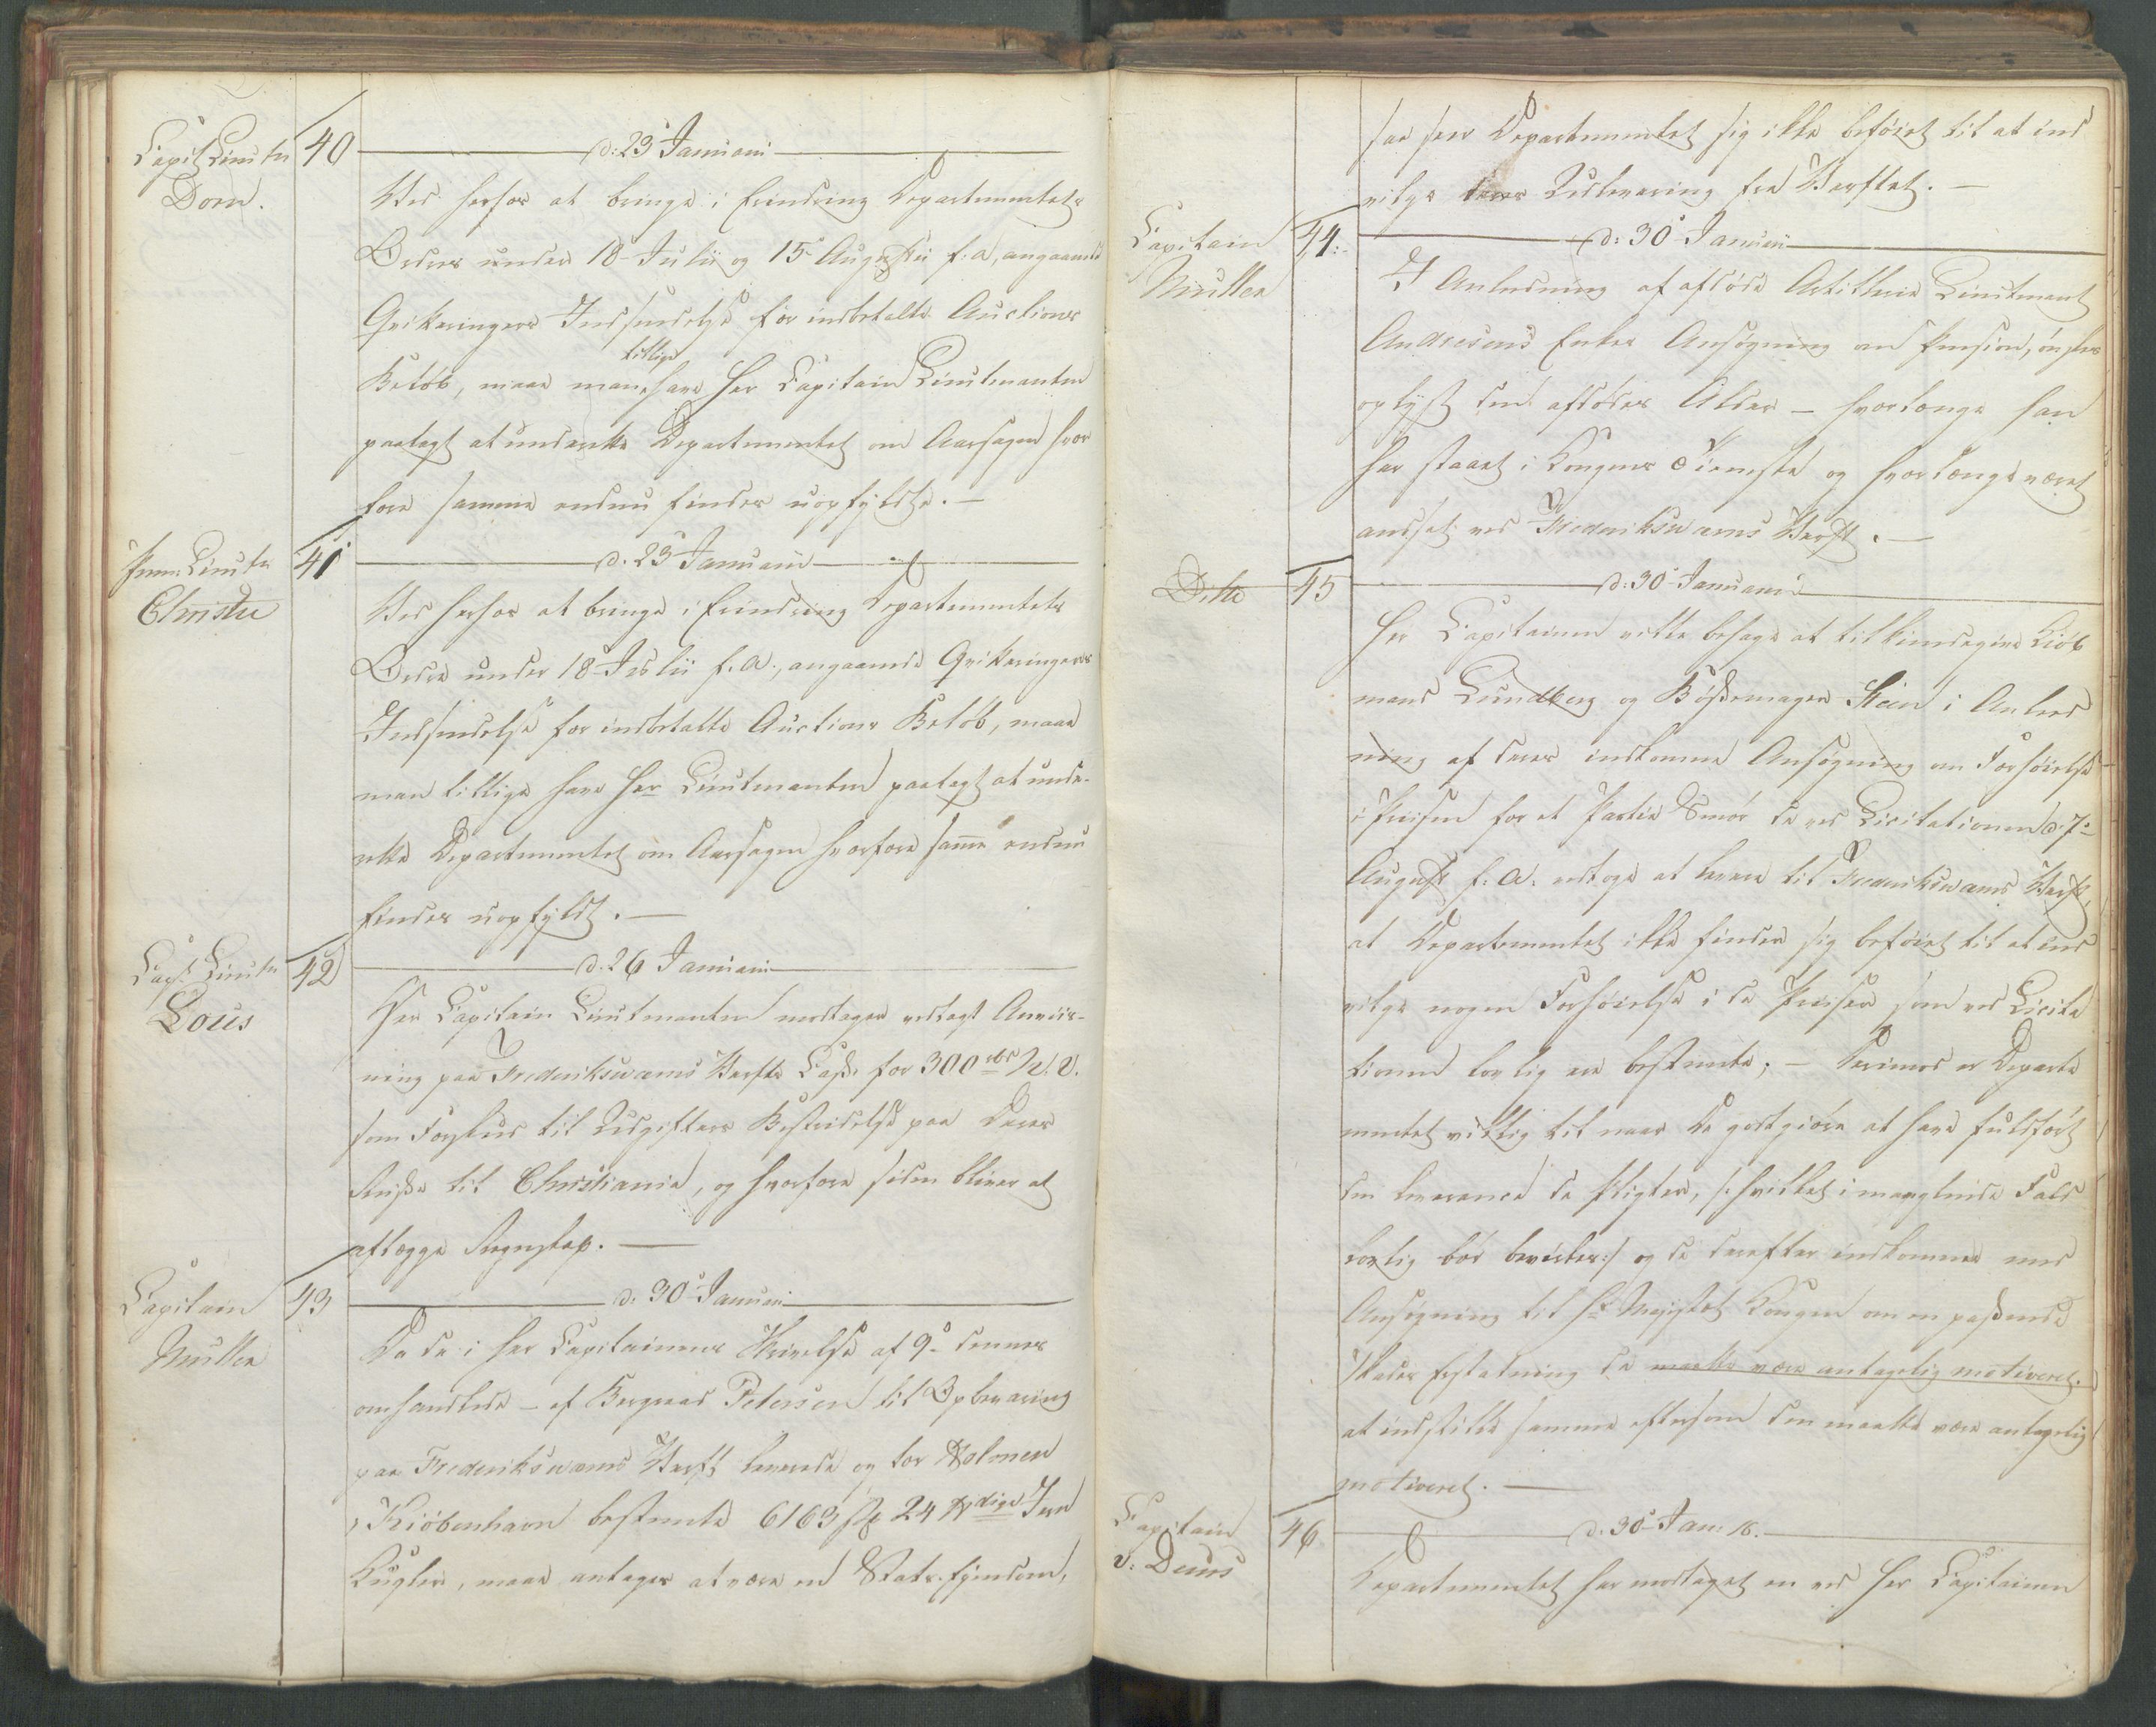 Capit Lieutn
Dorn.
40
d: 23 Januari
Ved herfor at bringe i Erindring Departementets
Ordres under 18 Julii og 15 Augusti f. a, angaaende
Qvitteringers Indsendelse for indbetalte Auctions
Beløb, maae man tillige have Hr Capitain Lieutenanten
paalagt at underrette Departementet om Aarsagen hvor
fore samme endnu findes uopfyldte.
Prem: Lieutn
Christie
41
d. 23 Januarii
Ved herfor at bringe i Erindring Departementets
Ordre under 18 Julii f. a., angaaende Qvitteringers
Indsendelse for indbetalte Auctions Beløb, maae
man tillige have Hr Lieutenanten paalagt at under-
rette Departementet om Aarsagen hvorfore samme endnu
findes uopfyldt.
Capt Lieutn
Lous
42
d. 26 Januari
Her Capitain Lieutenanten modtager vedlagt Anviis-
ning paa Frederiksværns Verfts Casse for 300 rbd N. V.
som Forskud til Udgifters Bestridelse paa Deres
Reise til Christiania, og hvorfore siden bliver at
aflægge Regnskap.
Capitain
Müller
43
d. 30 Januari
Da de i Her Capitainens Skrivelse af 9 dennes
omhandlede - af Bergraad Petersen til Opbevaring
paa Frederiksværns Verft leverede og for Holmen
i Kiöbenhavn bestemte 6163 st 24 ℔dige Jern
Kugler, maae antages at være en Stats-Ejendom,
saa seer Departementet sig ikke beføiet til at ind
vilge deres Udlevering fra Verftet.
Capitain
Müller
44.
d: 30 Januarii
I Anledning af afdøde Artillerie Lieutenant
Andresens Enkes Ansøgning om Pension, ønskes
oplyst den afdødes Alder - hvorlænge han
har staaet i Kongens Tieneste og hvorlænge været
ansat ved Frederiksværns Verft.
Ditto
45
d: 30 Januarii
Her Capitainen ville behage at tilkiendegive Kiöb
mand Lundberg og Bøssemager Stein i Anled
ning af deres indkomne Ansøgning om Forhøielse
i Prisen for et Partie Smør de ved Licitationen d. 7
August f: a. vedtoge at levere til Frederiksværns Verft,
at Departementet ikke finder sig beføiet til at ind
vilge nogen Forhøielse i de Priser som ved Licita
tionen lovlig ere bestemte; - derimod er Departe
mentet villig til naar De godtgiøre at have fuldført
den Leverance de pligter, /: hvilket i manglende Fald
lovlig bør bevises:/ og de derefter indkomme med
Ansøgning til Hs Majestet Kongen om en passende
Skades Erstatning da maatte være antagelig motiveret.
at indstille samme eftersom den maatte være antagelig
motiveret.
Capitain
v: Deurs
46
d. 30 Jan: 16.
Departementet har modtaget en ved Her Capitainen